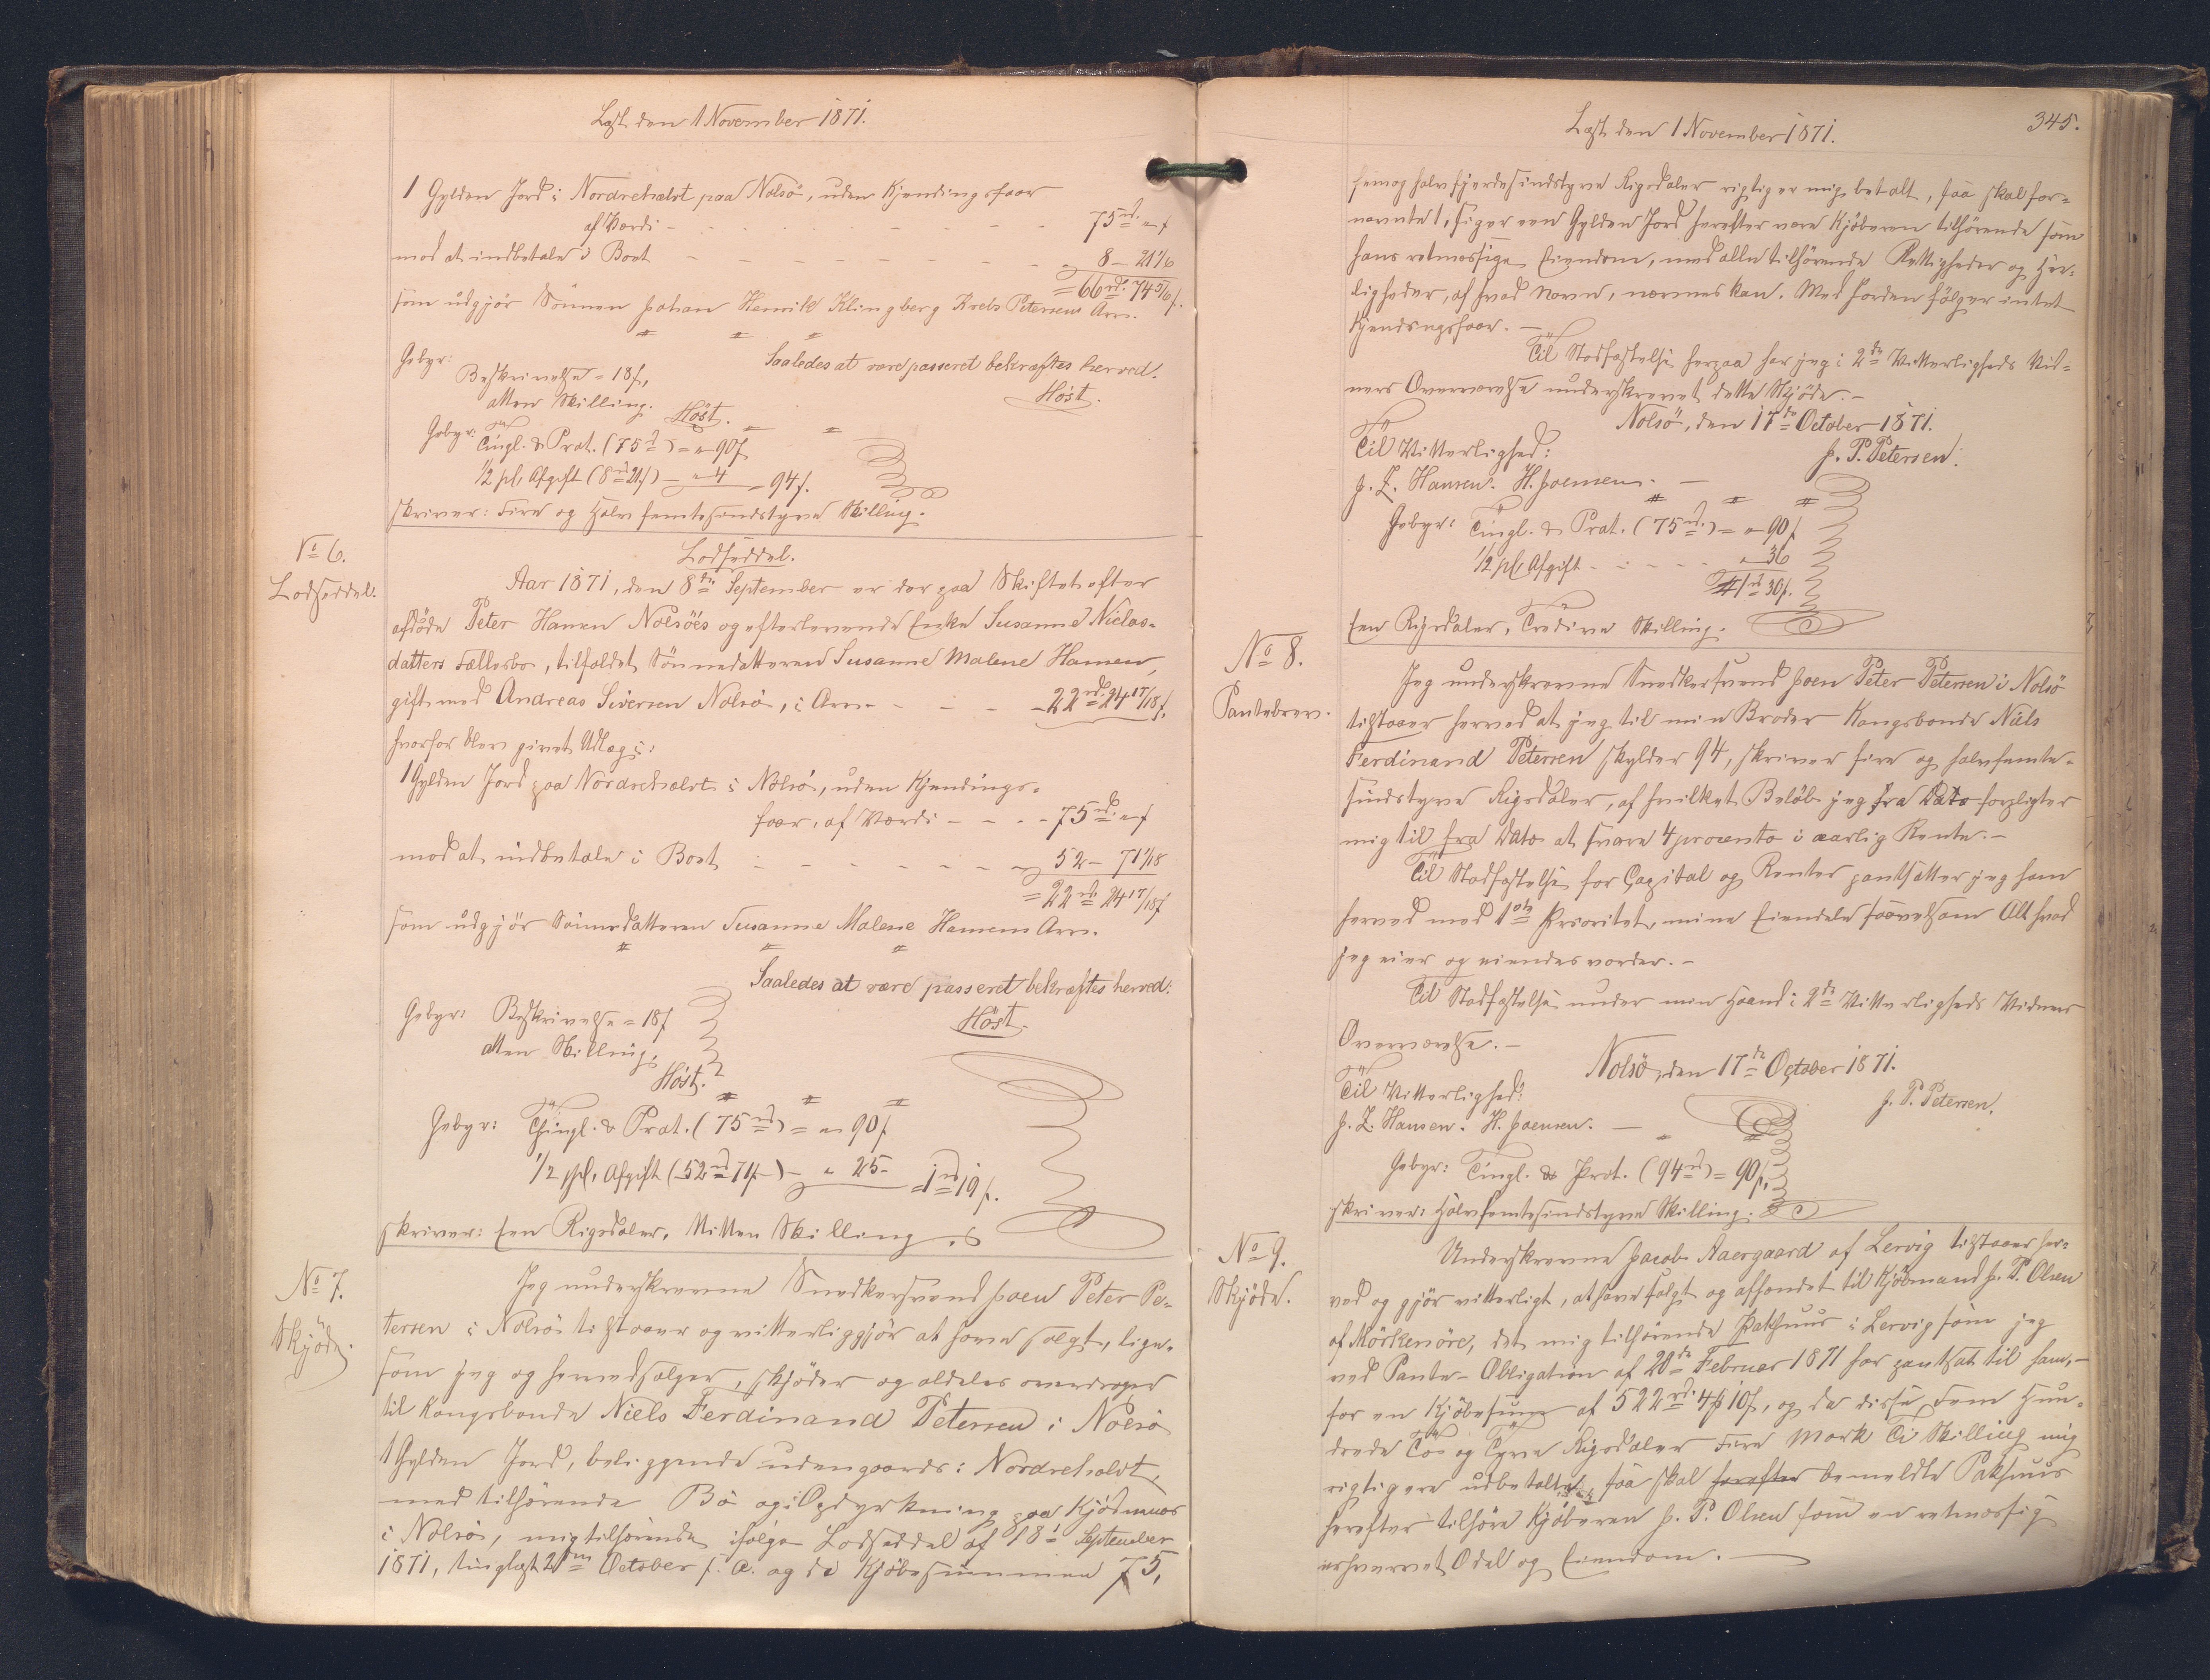 Læst den 1 November 1871.
1 Gylden Jord i Nordrehalvt paa Nolsö, uden Kjendingsfaar
af Værdi - - - - - 75 rd. " f
mod at indbetale i Boet - - - - - " 8 - 21 1/6
= 66 rd. 74 5/6 f.
som udgjør Sönnen Johan Henrik Klingberg Krebs Petersens Arv.
Gebyr:
Saaledes at være passeret bekræftes herved.
Beskrivelse = 18 f,
Höst.
atten Skilling. Höst.
Gebyr: Tingl. & Prot. (75 rd) = " 90 f
1/2 pCt. Afgift (8 rd 21 f) - " 4 = 94 f.
skriver: Fire og Halvfemtesindstyve Skilling.
No 6.
Lodseddel.
Lodseddel.
Aar 1871, den 8de September er der paa Skiftet efter
afdöde Peter Hansen Nolsöes og efterlevende Enke Susanne Niclas-
datters Fællesbo, tilfaldet Sönnedatteren Susanne Malene Hansen,
gift med Andreas Siversen Nolsö, i Arv - - - 22 rd. 24 17/18 f,
hvorfor blev givet Udlæg i:
1 Gylden Jord paa Nordrehalvt i Nolsö, uden Kjendings-
faar, af Værdi - - - 75 rd. " f
mod at indbetale i Boet - - - - - 52 - 71 1/18
= 22 rd. 24 17/18 f
som udgjör Sönnedatteren Susanne Malene Hansens Arv.
Saaledes at være passeret bekræftes herved:
Gebyr: Beskrivelse = 18 f
Höst.
atten Skilling,
Höst.
Gebyr: Thingl. & Prot. (75 rd) = " 90 f
1/2 pCt. Afgift (52 rd 71 f) - " 25 - = 1 rd 19 f.
skriver: Een Rigsdaler, Nitten Skilling.
No 7.
Skjöde.
Jeg underskrevne Snedkersvend Joen Peter Pe-
tersen i Nolsö tilstaaer og vitterliggjör at have solgt, lige-
som jeg og herved sælger, skjöder og aldeles overdrager
til Kongsbonde Niels Ferdinand Petersen i Nolsö
1 Gylden Jord, beliggende udengaards i Nordrehalvt,
med tilhörende Bö og Opdyrkning paa Kjödnæs
i Nolsö, mig tilhörende ifölge Lodseddel af 18de September
1871, tinglæst 2den October s. A. og da Kjöbesummen 75,
345.
Læst den 1 November 1871.
fem og halvfjerdesindstyve Rigsdaler rigtig er mig betalt, saa skal for-
nævnte 1, siger een Gylden Jord herefter være Kjöberen tilhörende som
hans retmæssige Eiendom, med alle tilhörende Rettigheder og Her-
ligheder, af hvad Navn, nævnes kan. Med Jorden fölger intet
Kjendingsfaar. -
Til Stadfæstelse herpaa har jeg i 2de Vitterligheds Vid-
ners Overværelse underskrevet dette Skjöde. -
Nolsö, den 17de October 1871.
Til Vitterlighed:
J. P. Petersen.
J. Z. Hansen. H. Joensen. -
Gebyr: Tingl. & Prot. (75 rd.) = " 90 f
1/2 pCt. Afgift - - - - " 36
1 rd 30 f.
Een Rigsdaler, Tredive Skilling.
No 8.
Pantebrev.
Jeg underskrevne Snedkersvend Joen Peter Petersen i Nolsö
tilstaaer herved at jeg til min Broder Kongsbonde Niels
Ferdinand Petersen skylder 94, skriver fire og halvfemte-
sindstyve Rigsdaler, af hvilket Belöb jeg fra Dato forpligter
mig til fra Dato at svare 4 procento i aarlig Rente. -
Til Stadfæstelse for Capital og Renter pantsætter jeg ham
herved med 1ste Prioritet, mine Eiendele saavelsom Alt hvad
jeg eier og eiendes vorder. -
Til Stadfæstelse under min Haand i 2de Vitterligheds Vidners
Overværelse. -
Nolsö, den 17de October 1871.
Til Vitterlighed:
J. P. Petersen.
J. Z. Hansen. H. Joensen. -
Gebyr: Tingl. & Prot. (94 rd) = 90 f,
skriver: Halvfemtesindstyve Skilling.
No 9.
Skjöde.
Underskrevne Jacob Aaergaard af Lervig tilstaaer her-
ved og gjör vitterligt, at have solgt og afhændet til Kjöbmand J. P. Olsen
af Mörkenöre, det mig tilhörende Pakhuus i Lervig som jeg
ved Pante-Obligation af 20de Februar 1871 har pantsat til ham, -
for en Kjöbesum af 522 rd. 4 ß 10 f, og da disse Fem Hun-
drede To og Tyve Rigsdaler Fire Mark Ti Skilling mig
rigtig ere udbetalte, saa skal herefter bemeldte Pakhuus
herefter tilhöre Kjöberen J. P. Olsen som en retmæssig
erhvervet Odel og Eiendom. -